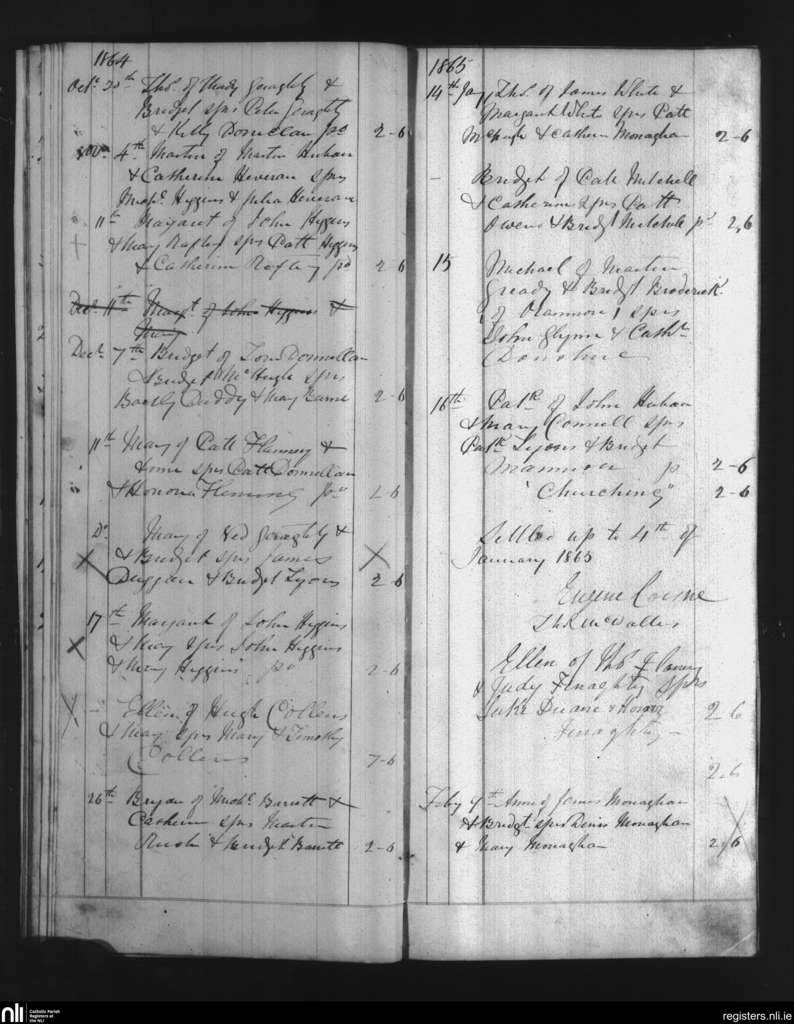 1864
Octr 20th Thos. of Thady Geraghty &
Bridget sprs Peter Geraghty
& Kitty Donnellan pd 2-6
4th Martin of Martin Huban
& Catherine Heveran sprs
Michl. Higgins & Julia Heveran
11th Margaret of John Higgins
& Mary Rafter sprs Patt Higgins
& Catherine Rafter pd 2 6
Decr 11th Margt. of John Higgins &
Mary
Decr 7th Bridget of Tom Donnellan
& Bridget McHugh sprs
Bartly Duddy & Mary 2-6
11th Mary of Patt Flannery &
sprs Patt Donnellan
& Honoria Fleming pd 2-6
Do Mary of Ned Geraghty &
& Bridget sprs James
Duggan & Bridget Lyons 2-6
17th Margaret of John Higgins
& Mary sprs John Higgins
& Mary Higgins pd 2-6
Ellen of Hugh Collens
& Mary sprs Mary & Timothy
Collens 7-6
26th Bryan of Michl. Barrett &
Catherine sprs Martin
Rush & Bridget Barrett 2-6
1865
14th Jany Thos. of James White &
Margaret White sprs Patt
McHugh & Catherin Monaghan 2-6
Bridget of Patt Mitchell
& Catherine sprs Patt
Owens & Bridgt Mitchell pd 2,6
15 Michael of Martin
Gready & Bridgt Broderick
of Oranmore sprs
John Glynn & Cathn
Donohue
16th Patk of John Huban
& Mary Connell sprs
Patk Lyons & Bridget
Mannion p 2-6
"Churching" 2-6
Settled up to 4th of
January 1865
Eugene Coyne
Thos McWalters
Ellen of Thos
& Judy Finaghty sprs
Luke Duane & Honor 2-6
Finaghty
2,6
Feby 4th Anne of James Monaghan
& Bridget sprs Denis Monaghan
& Mary Monaghan 2,6
nli
Catholic Parish
Registers at
the NLI
registers.nli.ie